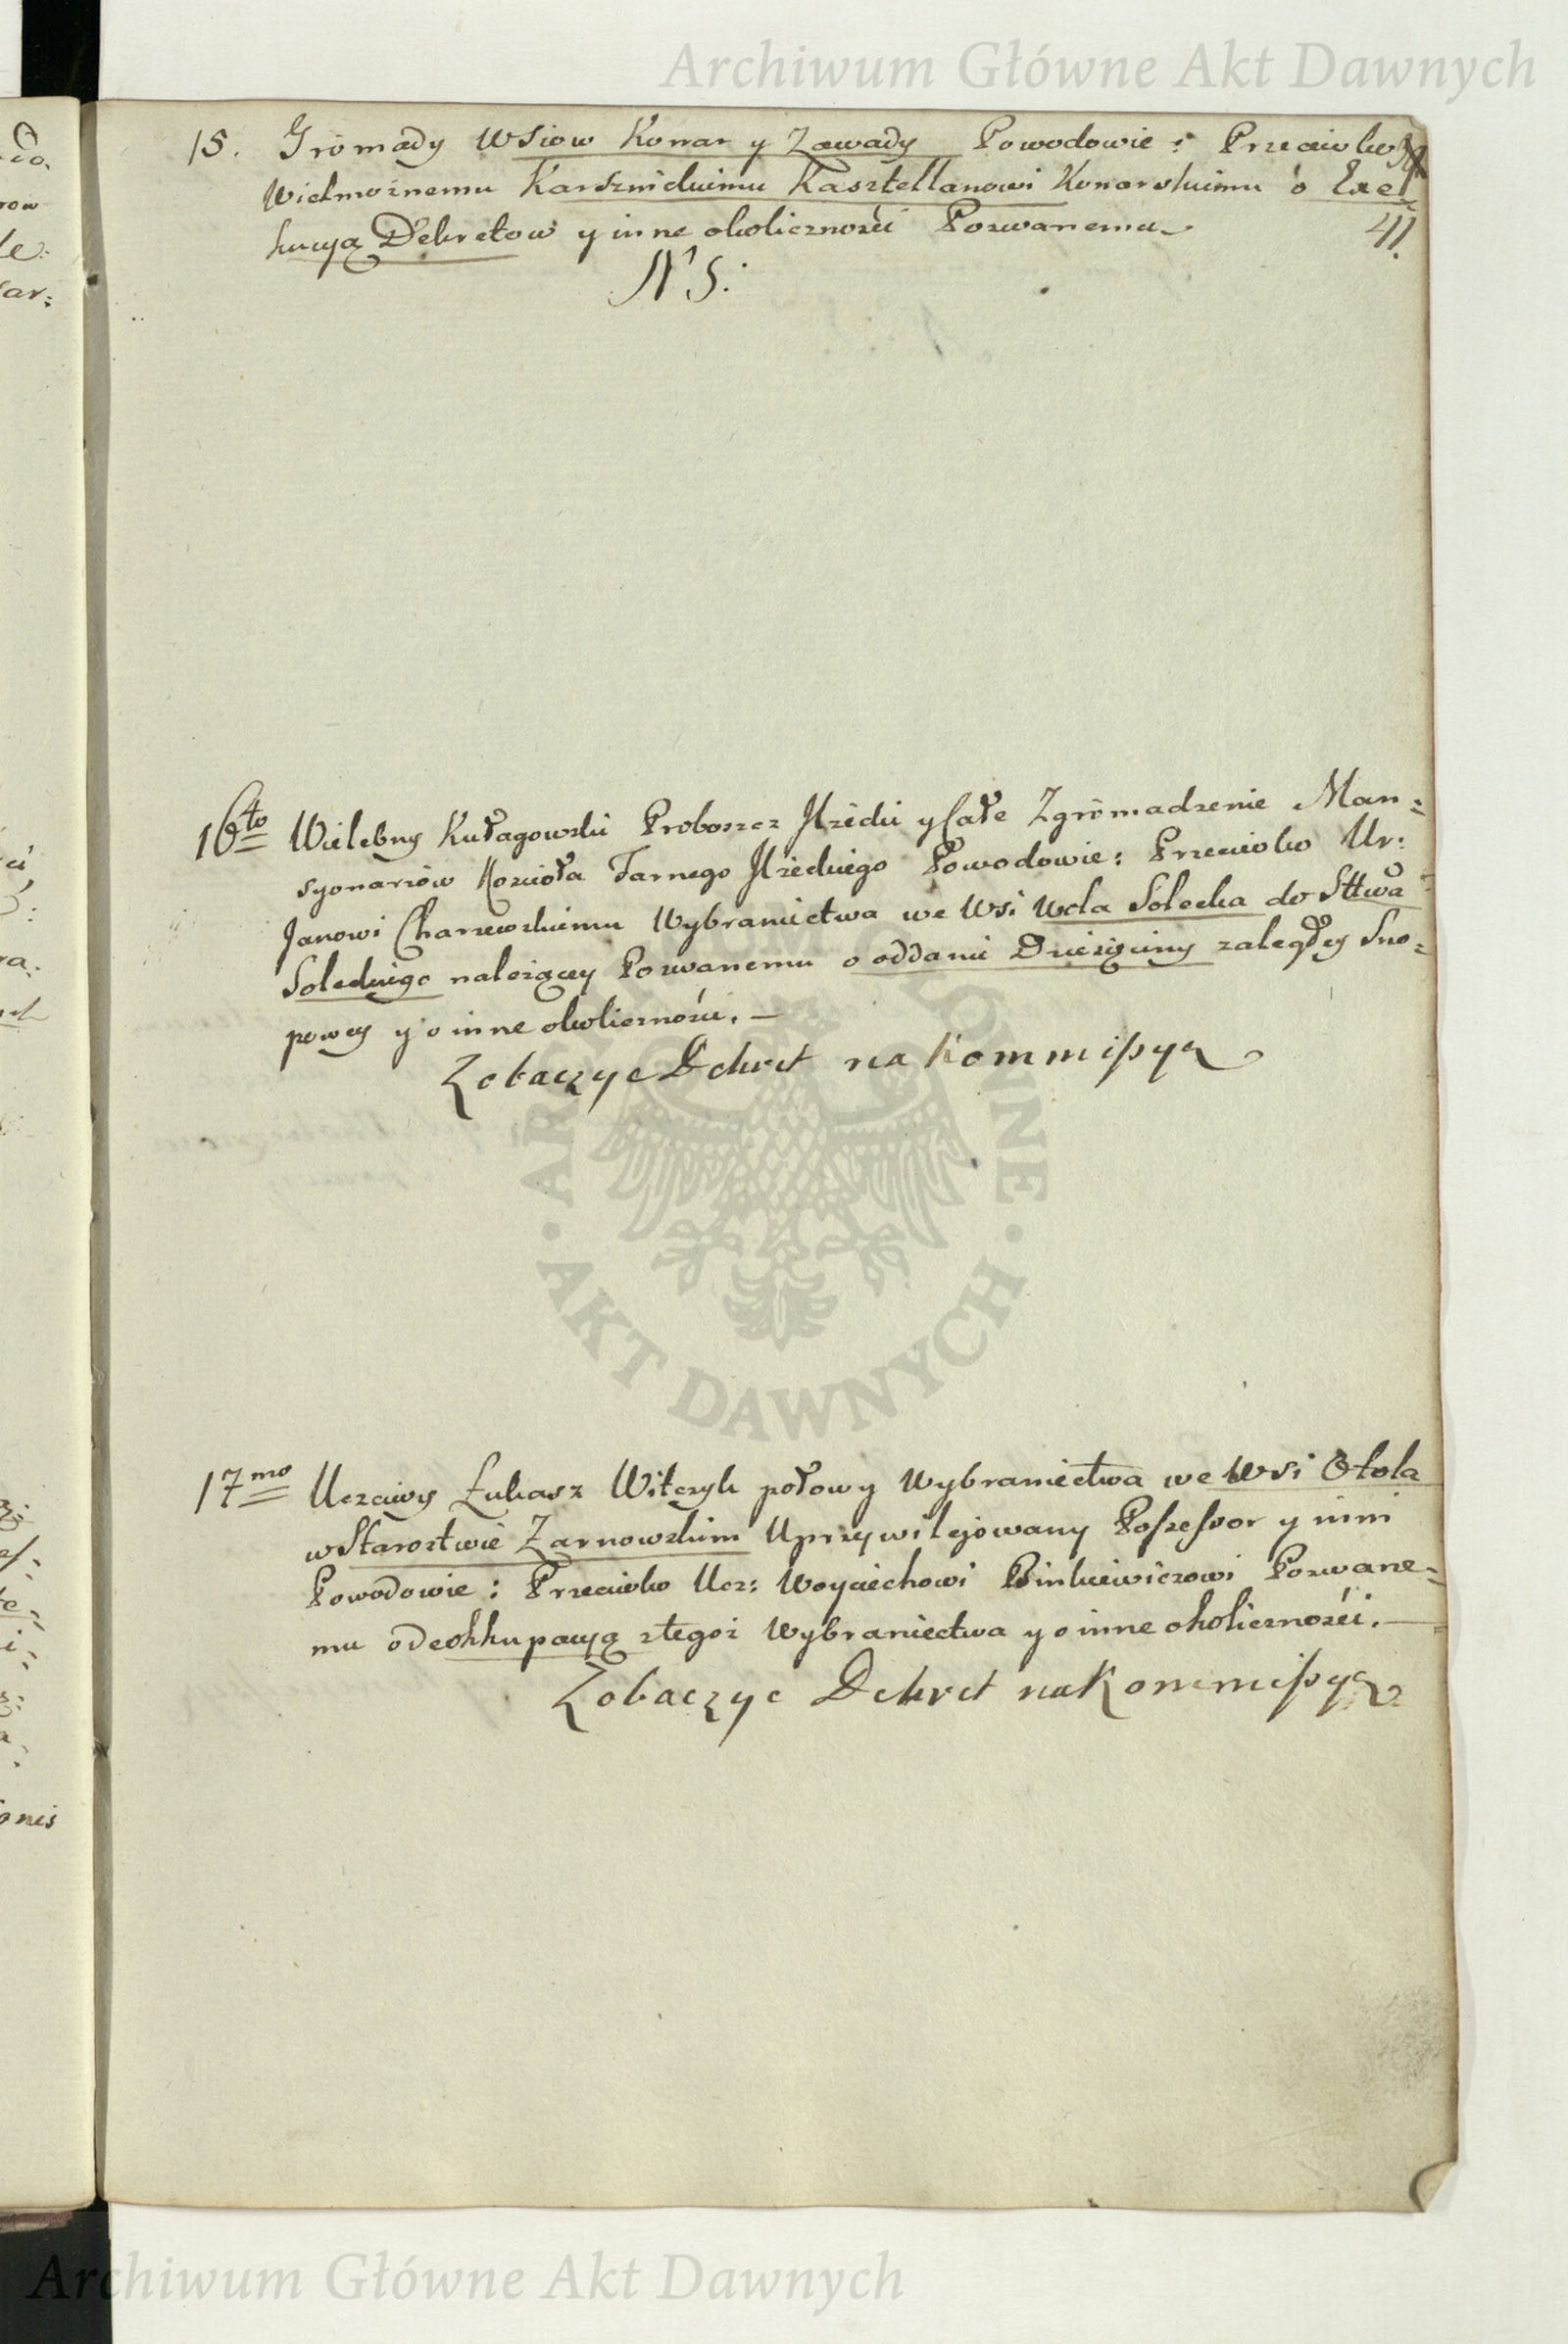 Archiwum Główne Akt Dawnych
15. Gromady Wsiow Konar y Zawady Powodowie: Przeciwko
Wielmożnemu Karsznickiemu Kasztellanowi Konarskiemu o Exe-
kucyą Dekretow y inne okoliczności Pozwanemu
41.
NS:
16to Wielebny Kułagowski Proboszcz Iłżecki y Całe Zgromadzenie Man=
syonarzów Kościoła Farnego Iłżeckiego Powodowie: Przeciwko Ur:
Janowi Charzewskiemu Wybraniectwa we Wsi Wola Solecka do Sttwa
Soleckiego należącey Pozwanemu o oddanie Dziesięciny zaległey Sno=
powey y o inne okoliczności. —
Zobaczyc Dekret na Kommissyą
17mo Uczciwy Łukasz Witczyk połowy Wybraniectwa we Wsi Stola
w Starostwie Zarnowskim Uprzywilejowany Possessor y inni
Powodowie: Przeciwko Ucz: Woyciechowi Binkiewiczowi Pozwane=
mu o deokkupacyą z tegoż Wybraniectwa y o inne okoliczności. —
Zobaczyc Dekret na Kommissyą
ARCHIWUM GŁÓWNE · AKT DAWNYCH ·
Archiwum Główne Akt Dawnych